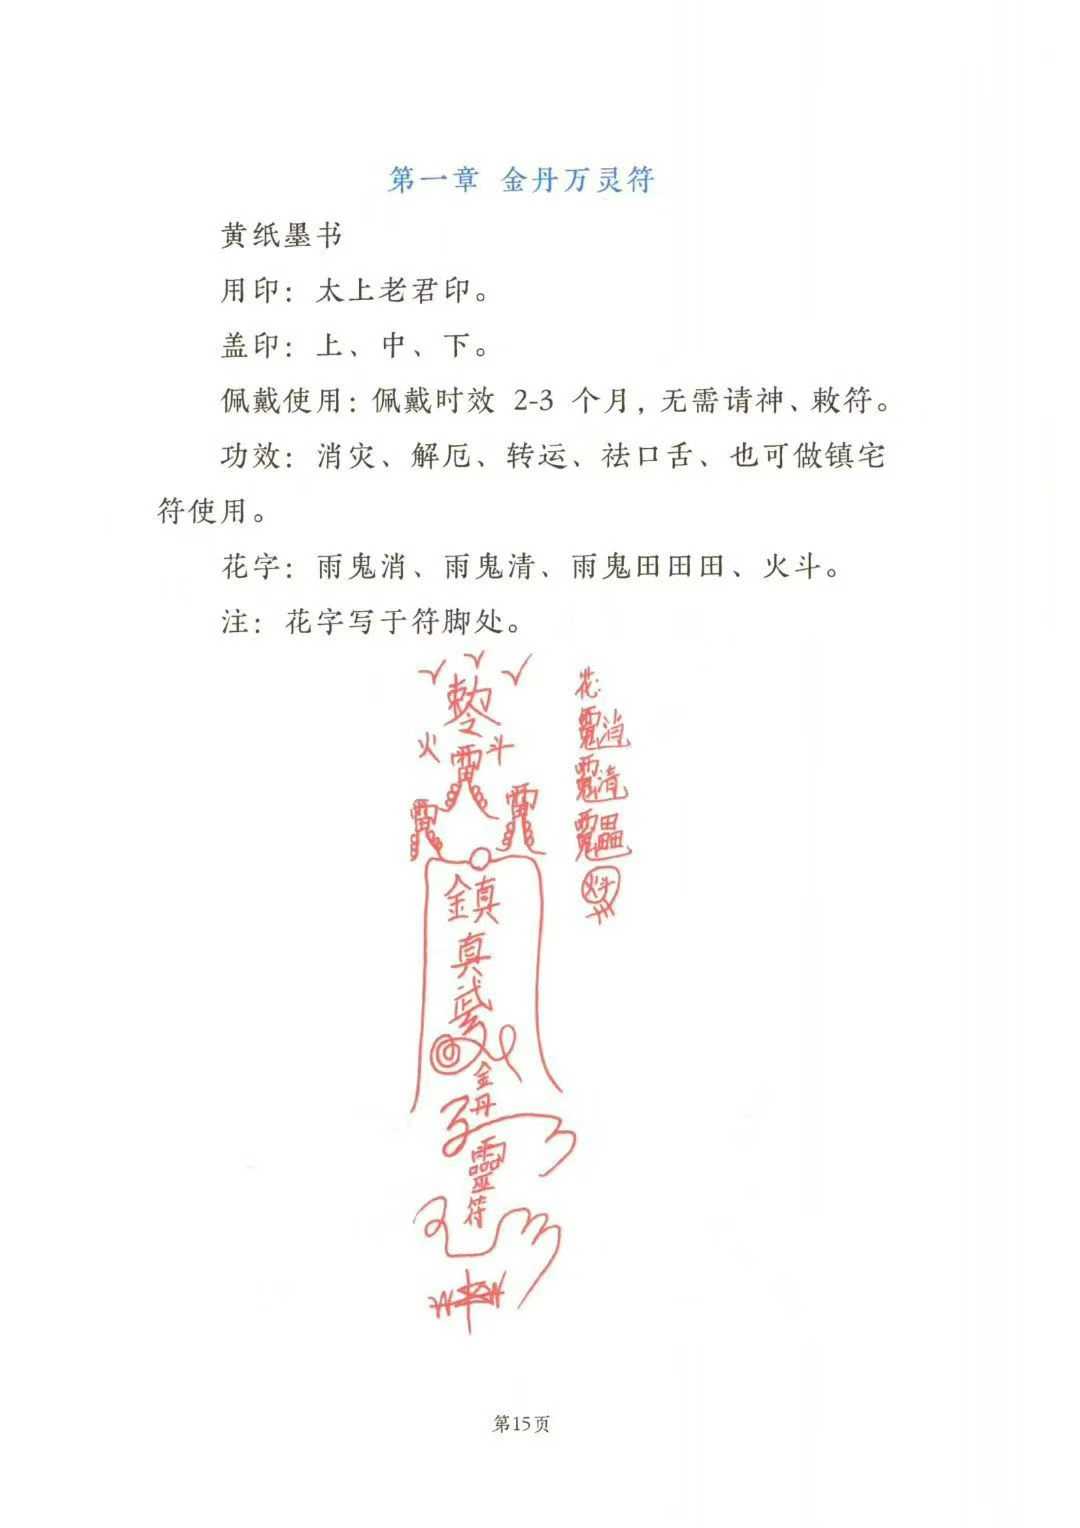 第一章 金丹万灵符
黄纸墨书
用印：太上老君印。
盖印：上、中、下。
佩戴使用：佩戴时效 2-3 个月，无需请神、敕符。
功效：消灾、解厄、转运、祛口舌、也可做镇宅
符使用。
花字：雨鬼消、雨鬼清、雨鬼田田田、火斗。
注：花字写于符脚处。
敕令
火 雷 斗
雷 雷
鎮
真
武
金
丹
靈
符
花:
火斗
第15页